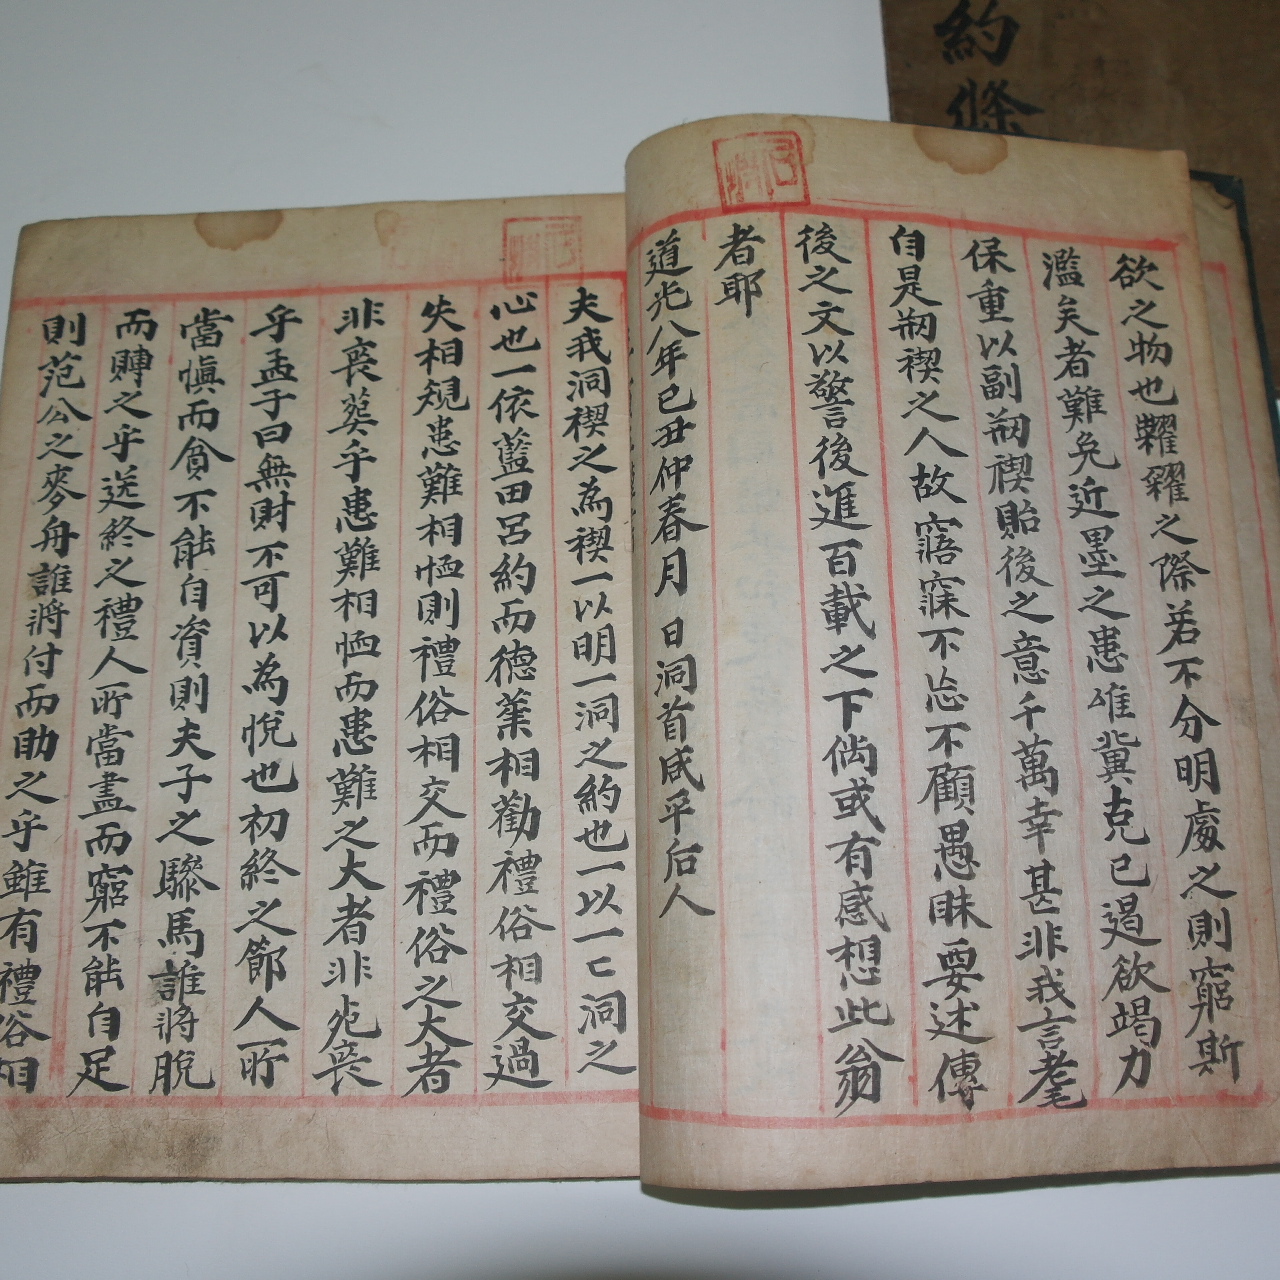 約條
欲之物也糶糴之際若不分明處之則窮斯
濫矣者難免近墨之患唯冀克已遏欲竭力
保重以副刱禊貽後之意千萬幸甚非我言耄
自是刱禊之人故寤寐不忘不顧愚昧要述傳
後之文以警後進百載之下倘或有感想此翁
者耶
道光八年已丑仲春月 日洞首咸平后人
夫我洞禊之為禊一以明一洞之約也一以一亡洞之
心也一依藍田呂約而德業相勸禮俗相交過
失相規患難相恤則禮俗相交而禮俗之大者
非喪葬乎患難相恤而患難之大者非死喪
乎孟子曰無財不可以為悅也初終之節人所
當愼而貧不能自資則夫子之驂馬誰將脫
而賻之乎送終之禮人所當盡而窮不能自足
則范公之麥舟誰將付而助之乎雖有禮俗相